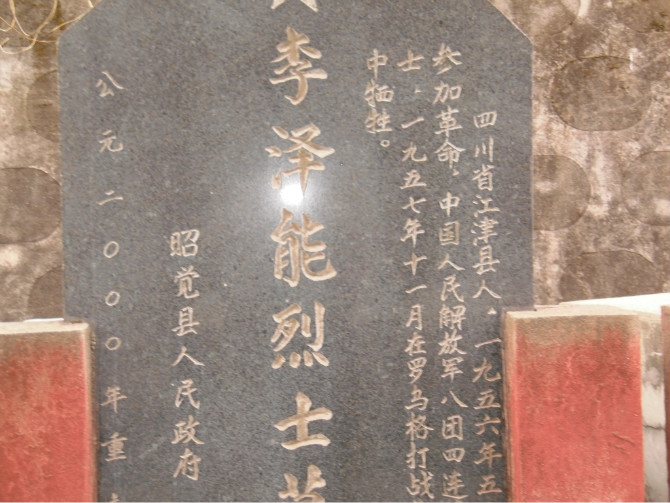 四川省江津县人，一九五六年五
参加革命，中国人民解放军八团四连
士，一九五七年十一月在罗乌格打战
中牺牲。
李泽能烈士
昭觉县人民政府
公元二〇〇〇年重